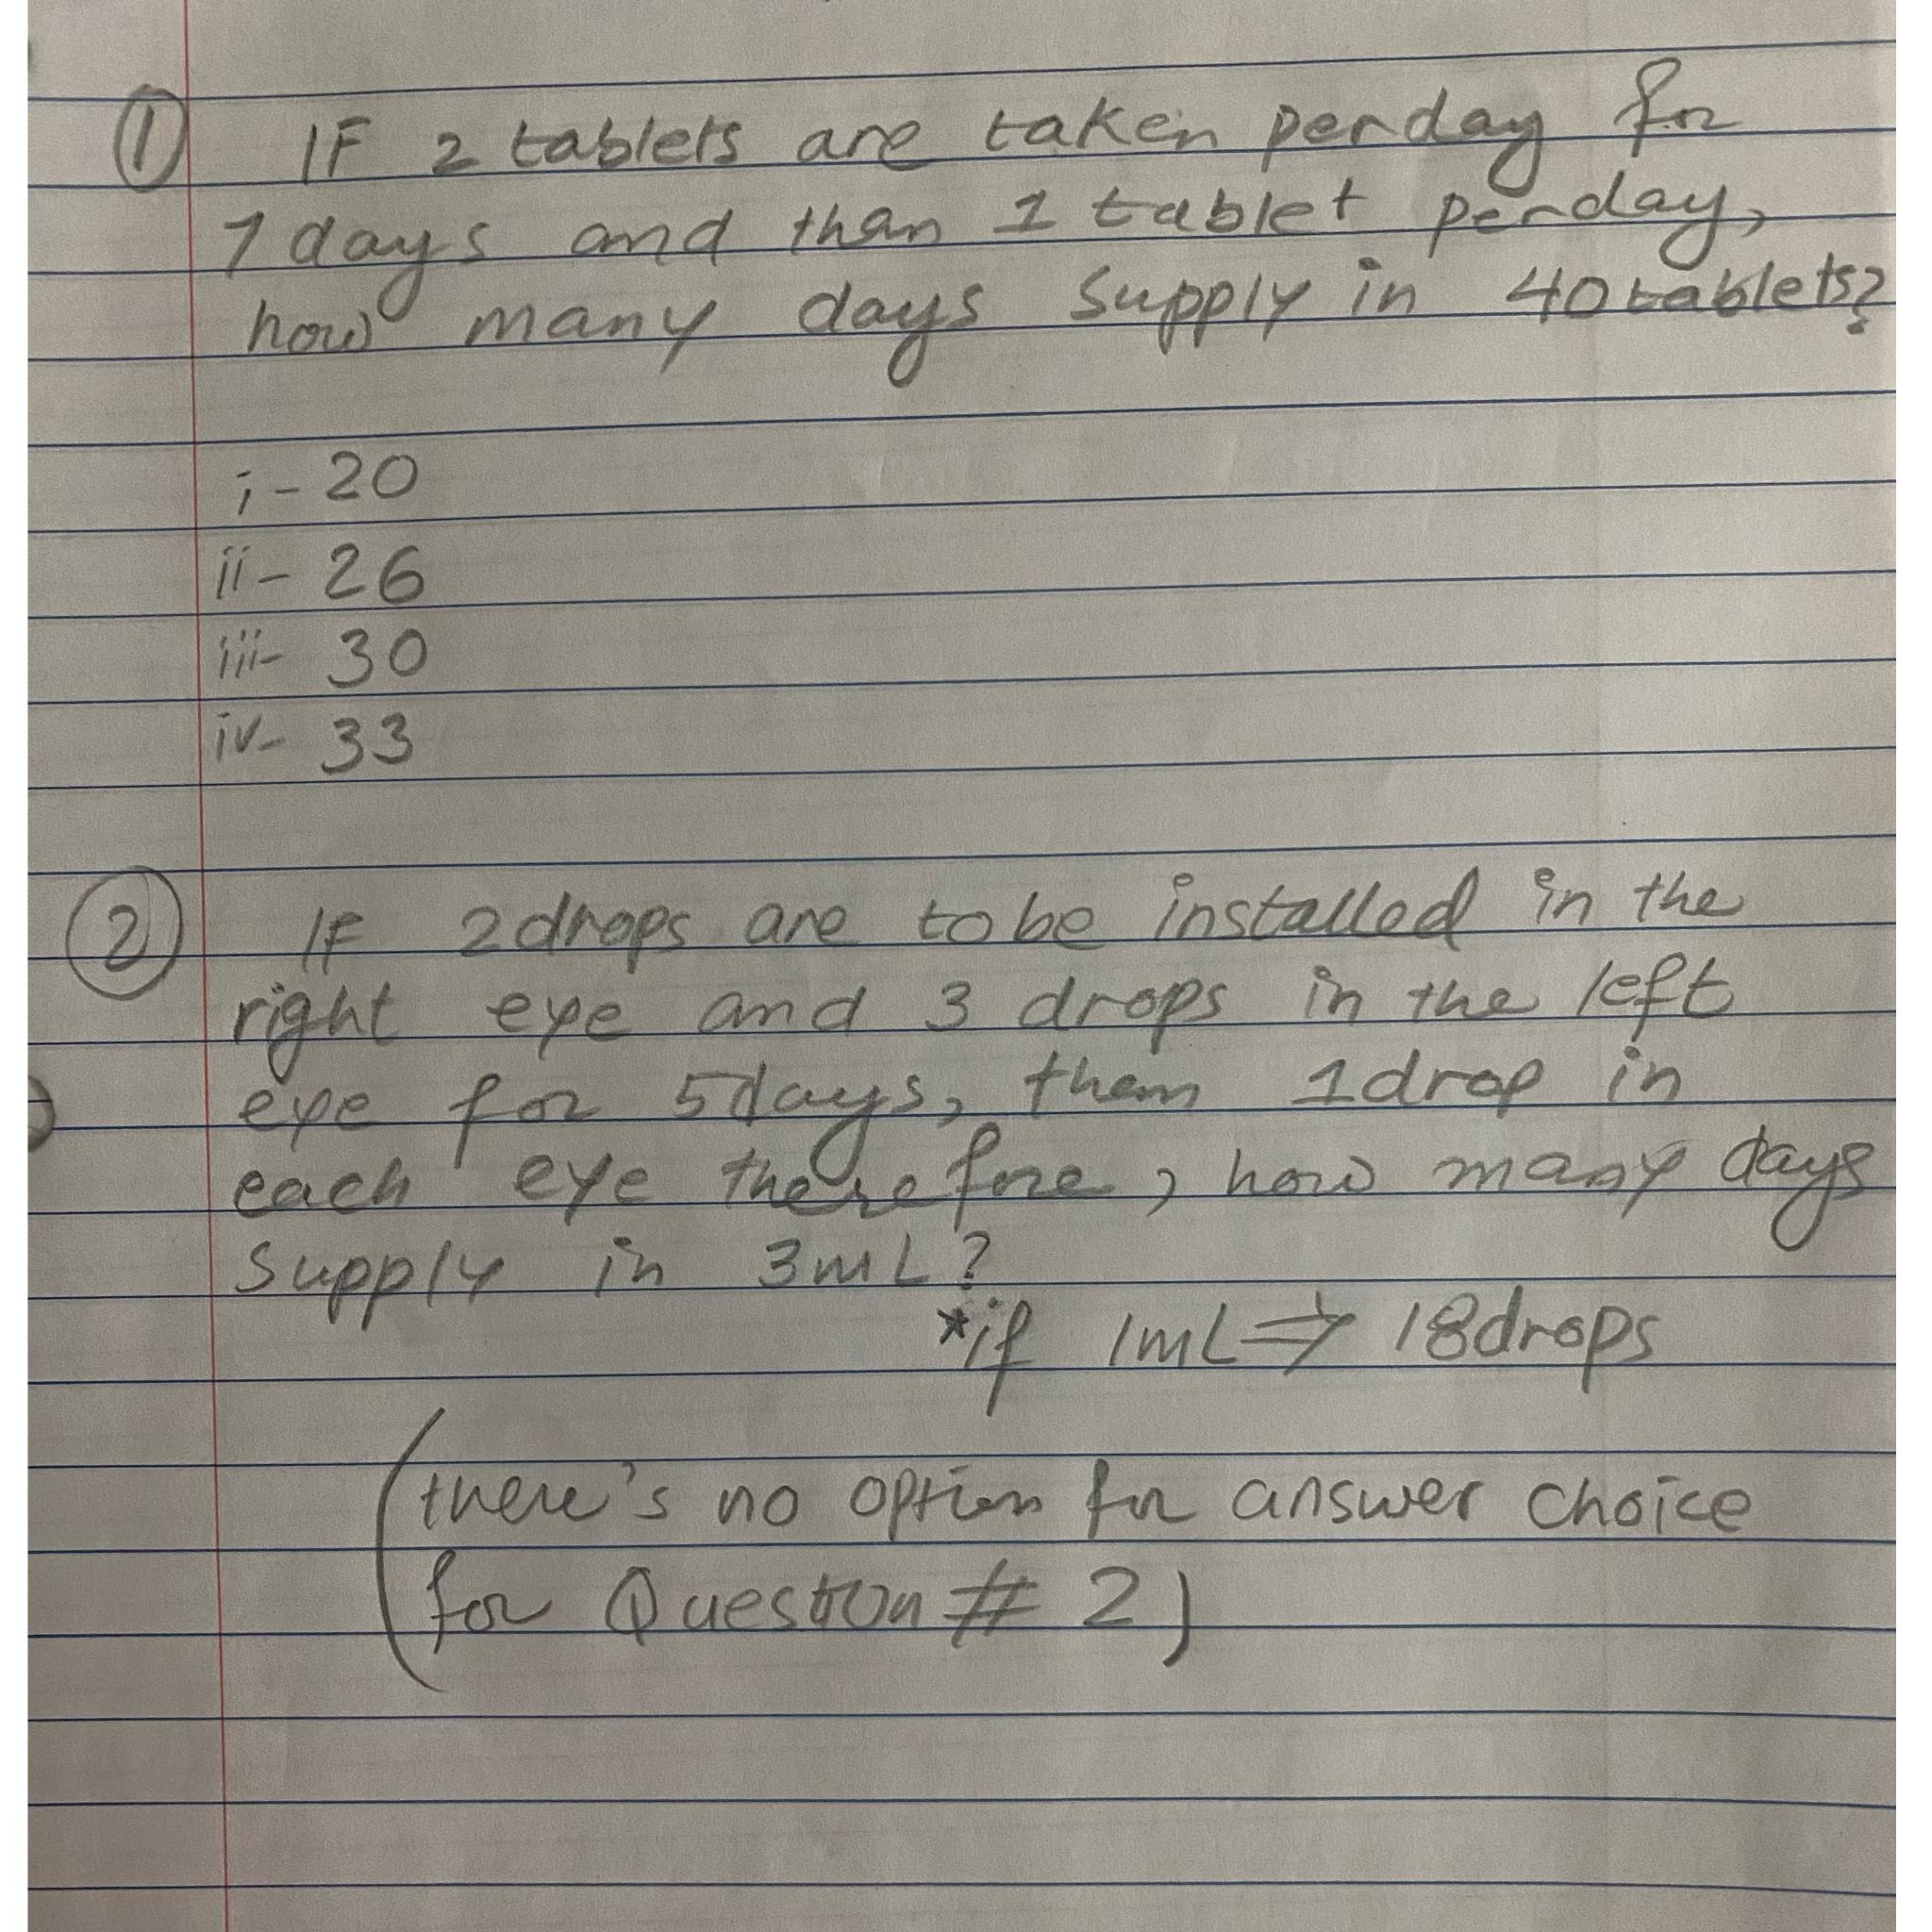 ① IF 2 tablets are taken perday for
7 days and than 1 tablet perday,
how many days supply in 40 tablets?
i - 20
ii - 26
iii- 30
iv- 33
② IF 2 drops are to be installed in the
right eye and 3 drops in the left
eye for 5 days, them 1 drop in
each eye therefore, how many days
supply in 3mL?
*if 1mL ⇒ 18 drops
(there's no option for answer choice
for Question # 2)